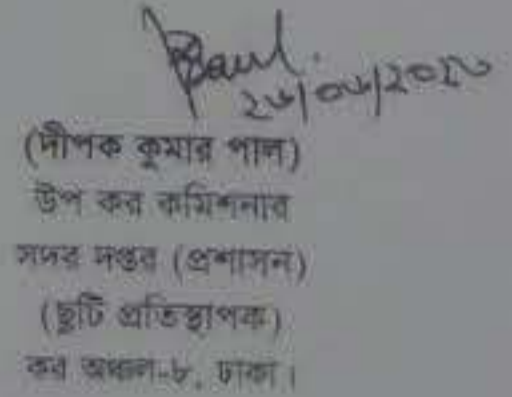 Paul.
২৬/০৬/২০২৩
(দীপক কুমার পাল)
উপ কর কমিশনার
সদর দপ্তর (প্রশাসন)
(ছুটি প্রতিস্থাপক)
কর অঞ্চল-৮, ঢাকা।